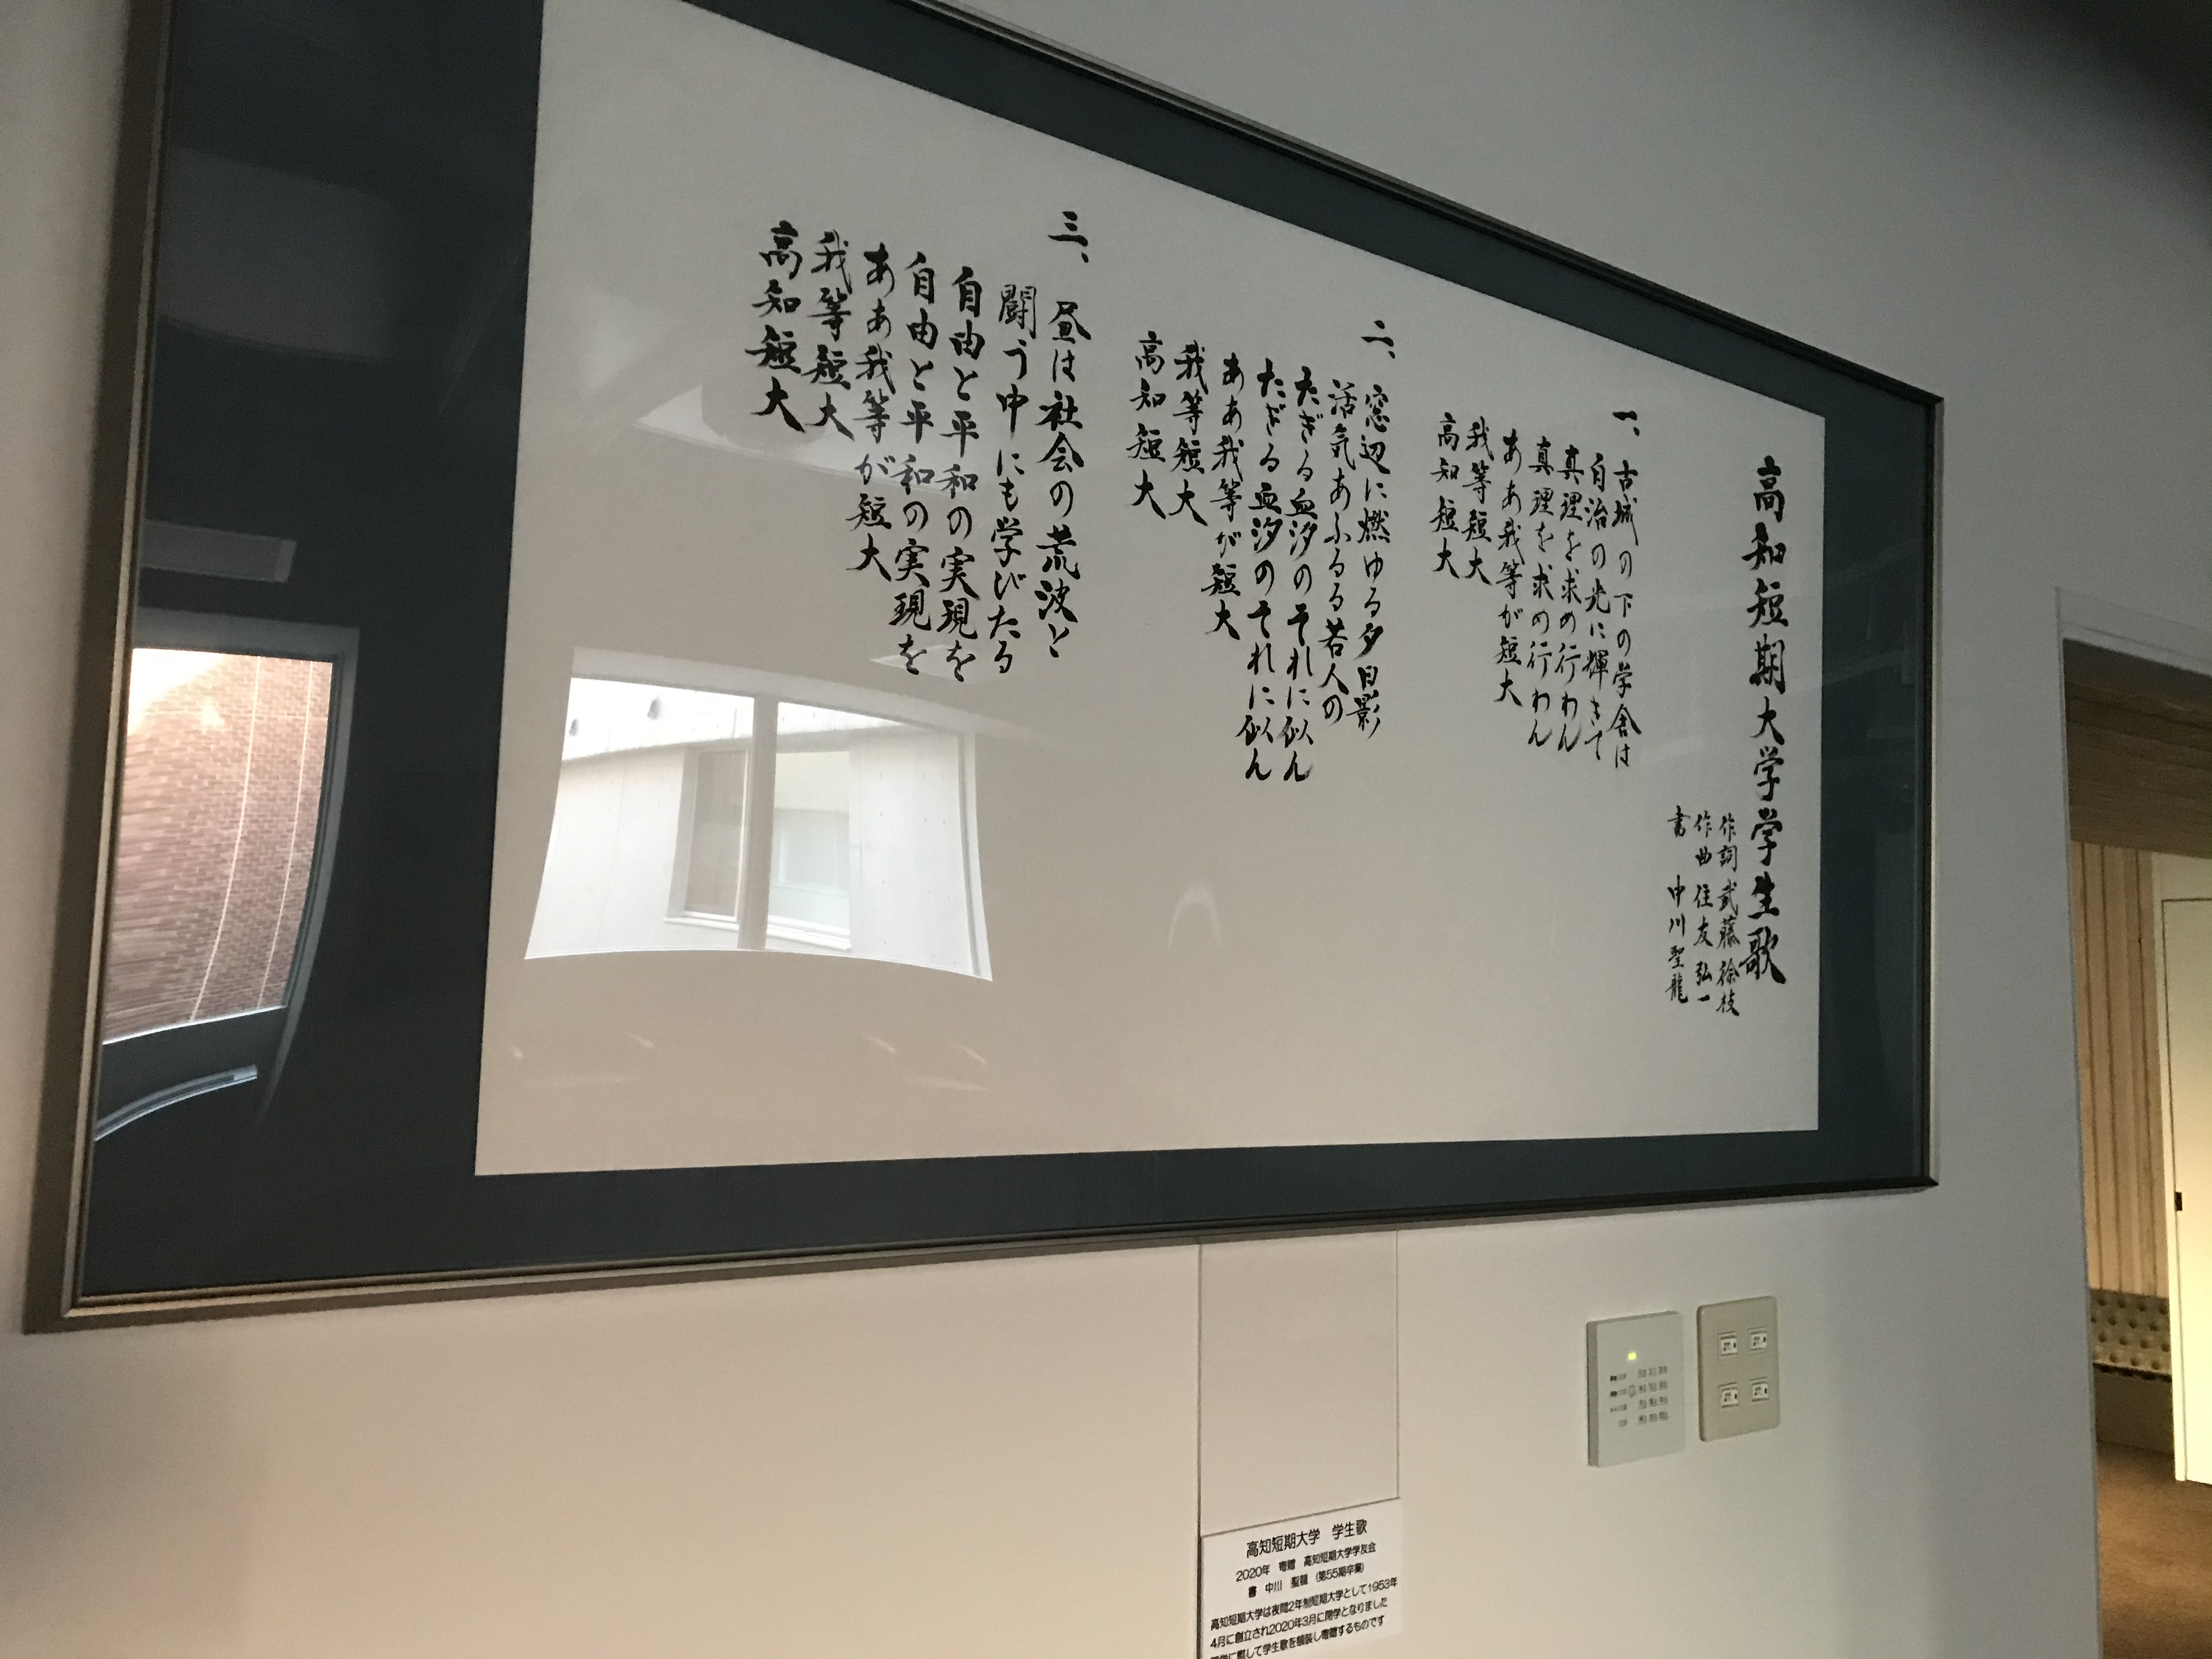 高知短期大学学生歌
作詞 武藤徐枝
作曲 住友弘一
書 中川聖龍
一、古城の下の学舎は
自治の光に輝きて
真理を求め行わん
真理を求め行わん
ああ我等が短大
我等短大
高知短大
二、窓辺に燃ゆる夕日影
活気あふるる若人の
たぎる血汐のそれに似ん
たぎる血汐のそれに似ん
ああ我等が短大
我等短大
高知短大
三、昼は社会の荒波と
闘う中にも学びたる
自由と平和の実現を
自由と平和の実現を
ああ我等が短大
我等短大
高知短大
高知短期大学 学生歌
2020年 寄贈 高知短期大学学友会
書 中川 聖龍 (第55期卒業)
高知短期大学は夜間2年制短期大学として1953年
4月に創立され2020年3月に閉学となりました
して学生歌を額装し寄贈するものです